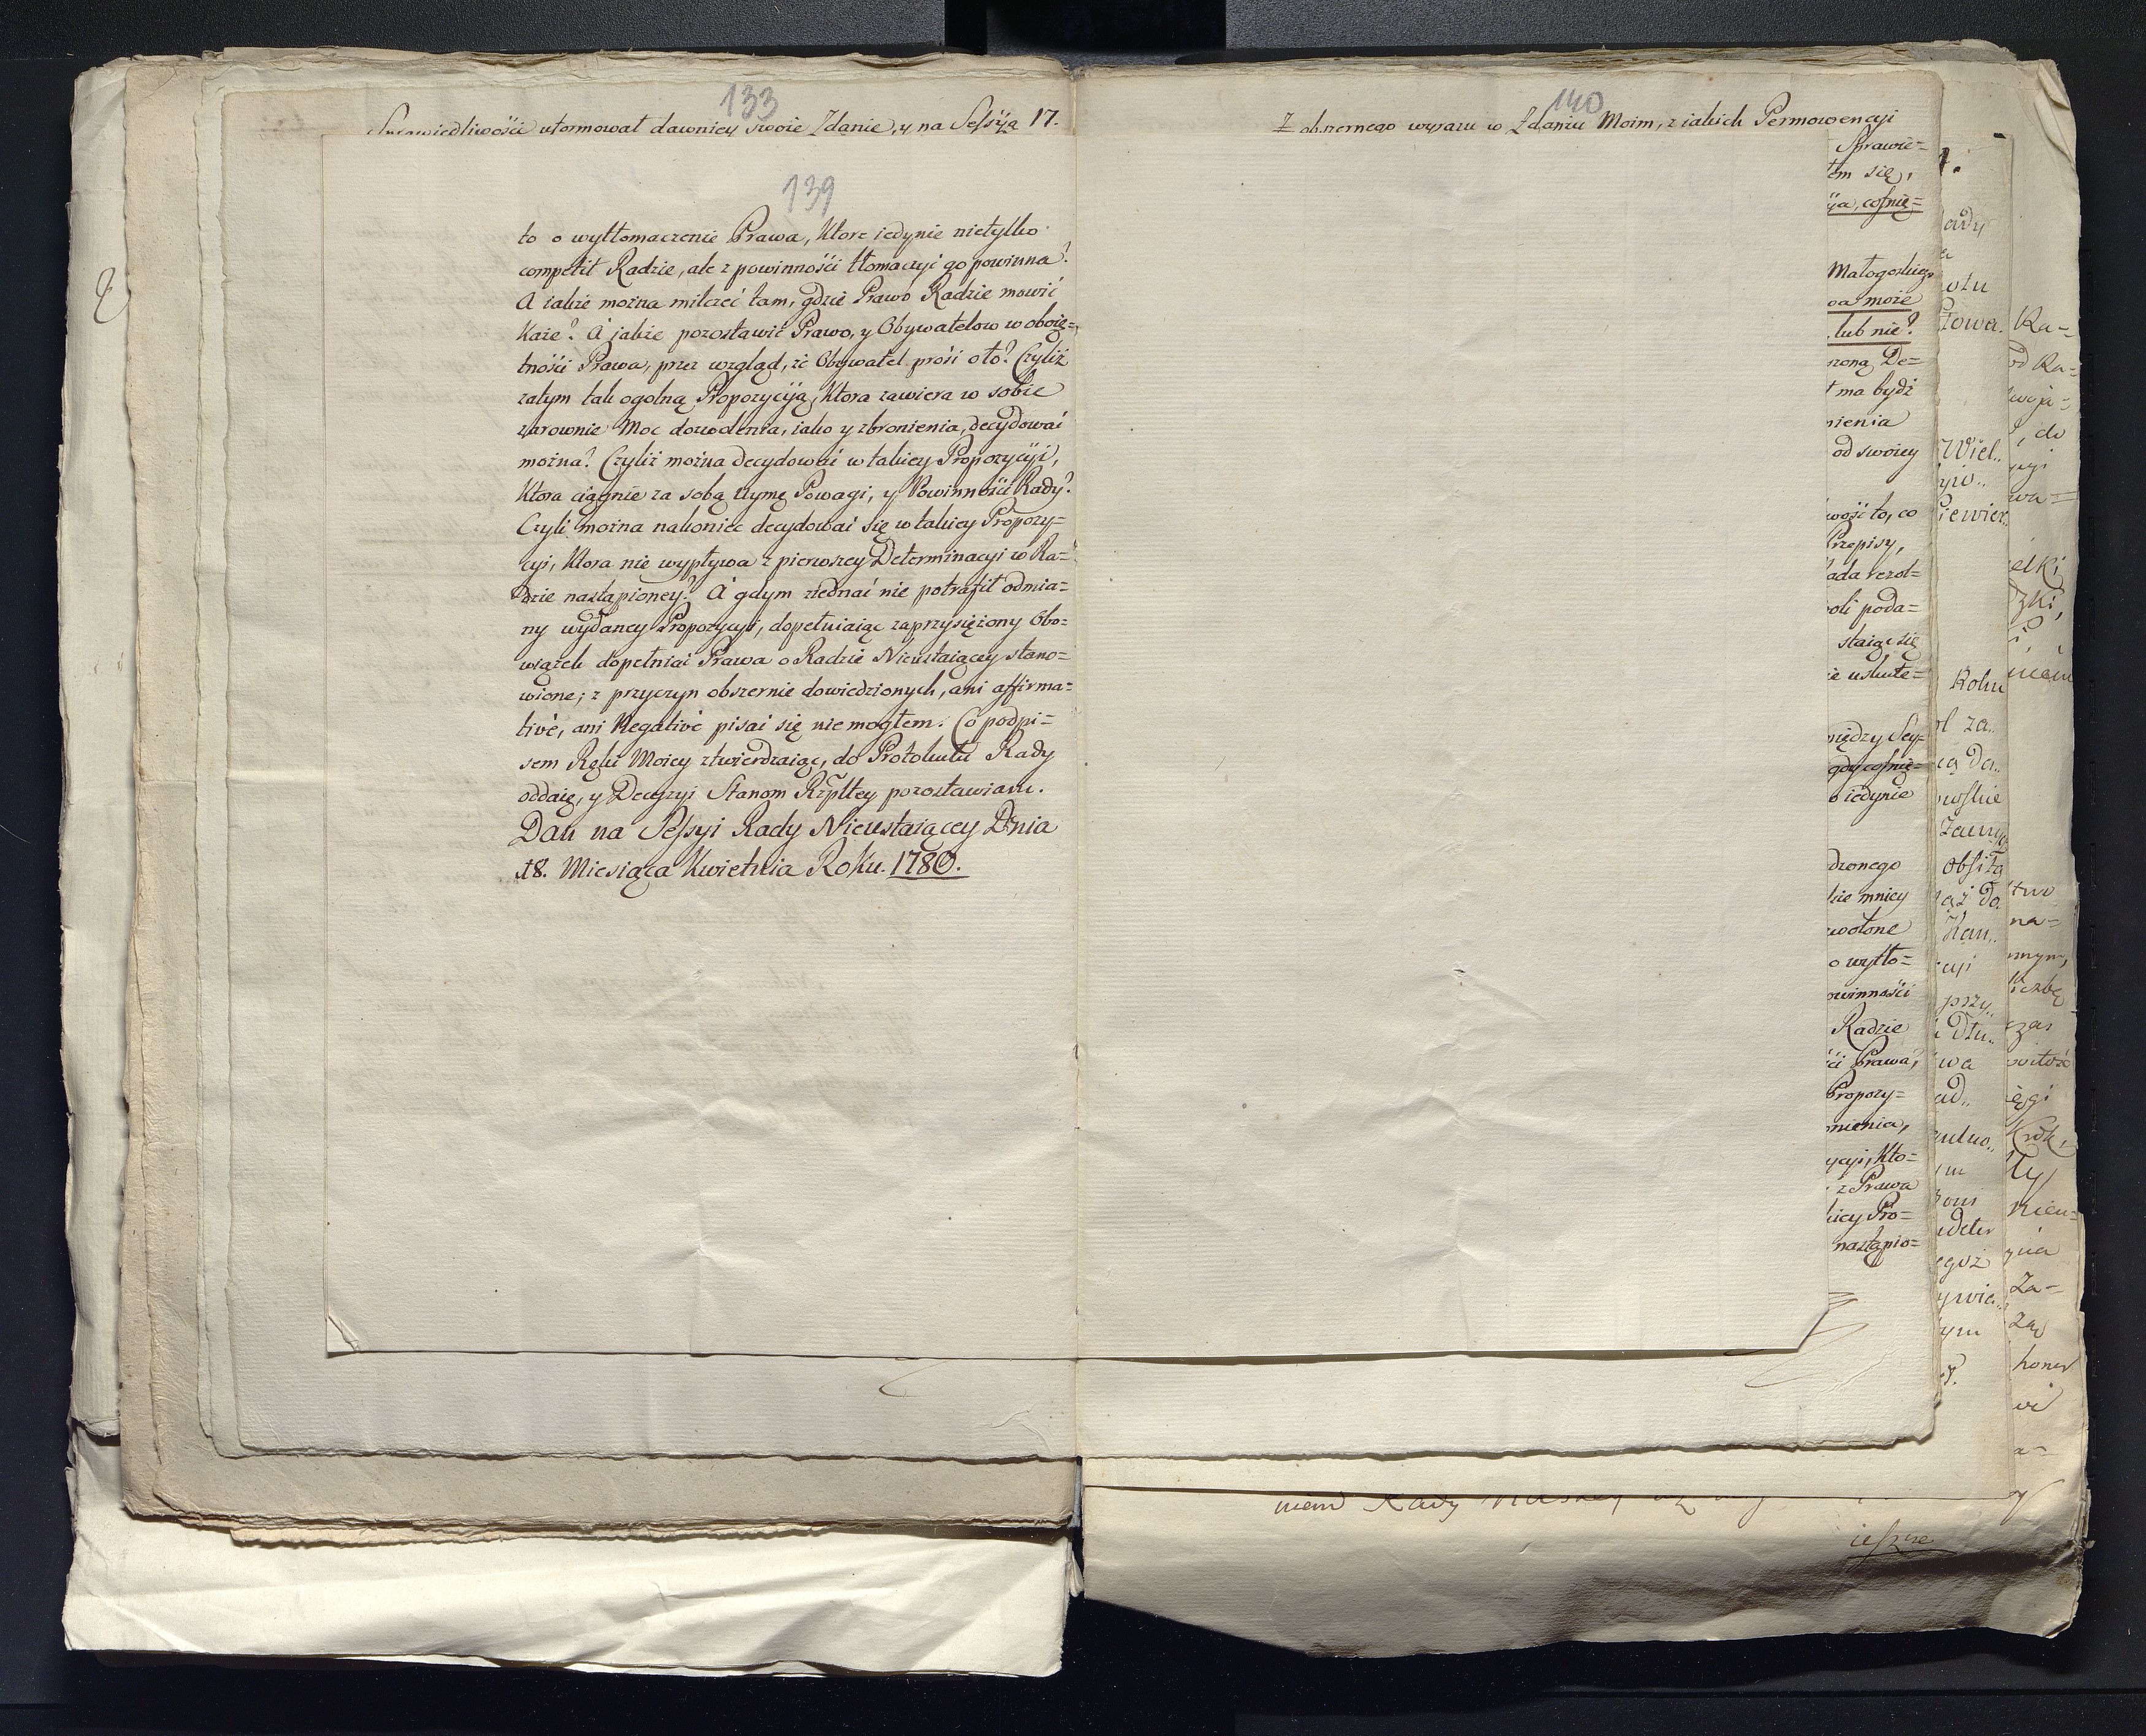 133
Sprawiedliwości uformował dawniey swoie Zdanie, y na Sessyią 17.
139
to o wytłomaczenie Prawa, Ktore iedynie nietylko
competit Radzie, ale z powinności tłomaczyć go powinna?
A iakże można milczeć tam, gdzie Prawo Radzie mowić
Każe? A jakże pozostawić Prawo, y Obywatelow w oboię=
tności Prawa, przez wzgląd, że Obywatel prosi o to? Czyliż
zatym tak ogolną Propozycyią, Ktora zawiera w sobie
zarownie Moc dozwolenia, iako y zbronienia, decydować
można? Czyliż można decydować w takiey Propozycyi,
Ktora ciągnie za sobą tłymę Powagi, y Powinności Rady?
Czyli można nakoniec decydować się w takiey Propozy=
cyi, Ktora nie wypływa z pierwszey Determinacyi w Ra=
dzie nastąpioney? A gdym ziednać nie potrafił odmia=
ny wydaney Propozycyi, dopełniaiąc zaprzysiężony Obo=
wiązek dopełniać Prawa o Radzie Nieustaiącey stano=
wione; z przyczyn obszernie dowiedzionych, ani affirma=
tivè, ani Negativè pisać się nie mogłem. Co podpi=
sem Ręki Moiey ztwierdzaiąc, do Protokułu Rady
oddaię, y Decyzyi Stanom Rzpltey pozostawiam.
Dan na Sessyi Rady Nieustaiącey Dnia
18. Miesiąca Kwietnia Roku. 1780.
140
Z obszernego wyrazu w Zdaniu Moim, z iakich Permowencyi
Sprawie=
tem się,
yia, cofnię=
Małogoskiego
wa może
lub nie?
rzoną De=
t ma bydź
nienia
od swoiey
wość to, co
Przepisy,
ada rezol=
oli poda=
staiąc się
ie uskute=
między Sey=
gdy cofnię=
o iedynie
dzonego
kie mniey
zwolone
o wytło=
owinności
Radzie
ści Prawa,
Propozy=
onienia,
ycyi, Kto=
z Prawa
kiey Pro=
nastąpio=
Rady
otu
Wiel..
iewier.
Roku
ol za..
ią Da..
owskie
obsita
aż do.
Kan..
cyi
przy..
Dłu..
wa
ad..
egoż
ym
Ka=
od Ka=
do
wa=
elki
zki,
na=
czas
Krok,
Nieu=
Za=
niem Rady
ieszcze